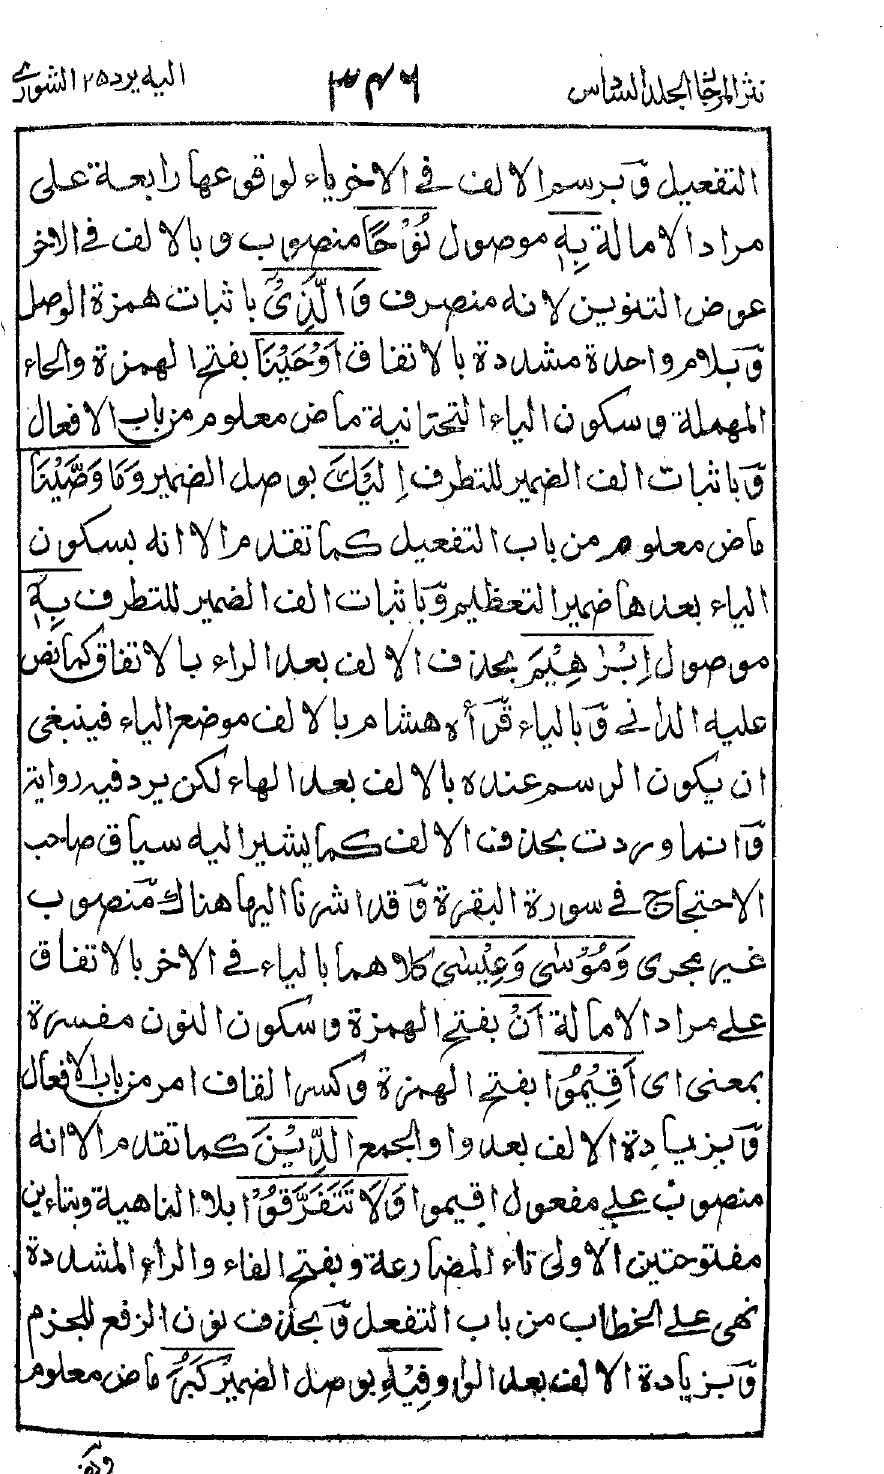 نثر المرجان الجلد السادس ٣٤٦ اليه يرد ٢٥ الشورى
التفعيل وّبرسم الالف في الاخرياء لوقوعها رابعة على
مراد الامالة بِهٖ موصول نُوْحًا منصوب وبالالف في الاخر
عوض التنوين لانه منصرف وَالَّذِىْ باثبات همزة الوصل
وّبلام واحدة مشددة بالاتفاق اَوْحَيْنَا بفتح الهمزة والحاء
المهملة وسكون الياء التحتانية ماض معلوم من باب الافعال
وّباثبات الف الضمير للتطرف اِلَيْكَ بوصل الضمير وَمَا وَصَّيْنَا
ماض معلوم من باب التفعيل كما تقدم الا انه بسكون
الياء بعدها ضمير التعظيم وّباثبات الف الضمير للتطرف بِهٖ
موصول اِبْرٰهِيْمَ بحذف الالف بعد الراء بالاتفاق كما نص
عليه الداني وّبالياء قّرأه هشام بالالف موضع الياء فينبغى
ان يكون الرسم عنده بالالف بعد الهاء لكن يرد فيه رواية
وّانما وردت بحذف الالف كما يشير اليه سياق صاحب
الاحتجاج في سورة البقرة وّقد اشرنا اليها هناك مّنصوب
غير مجرى وَمُوْسٰى وَعِيْسٰى كلاهما بالياء في الاخر بالاتفاق
على مراد الامالة اَنْ بفتح الهمزة وسكون النون مفسرة
بمعنى اى اَقِيْمُوا بفتح الهمزة وّكسر القاف امر من باب الافعال
وّبزيادة الالف بعد واو الجمع الدِّيْنَ كما تقدم الا انه
منصوب على مفعول اقيموا وَلَا تَتَفَرَّقُوْا بلا الناهية وبتاءين
مفتوحتين الاولى تاء المضارعة وبفتح الفاء والراء المشددة
نهى على الخطاب من باب التفعل وّبحذف نون الرفع للجزم
وّبزيادة الالف بعد الواو فِيْهِ بوصل الضمير كَبُرَ ماض معلوم